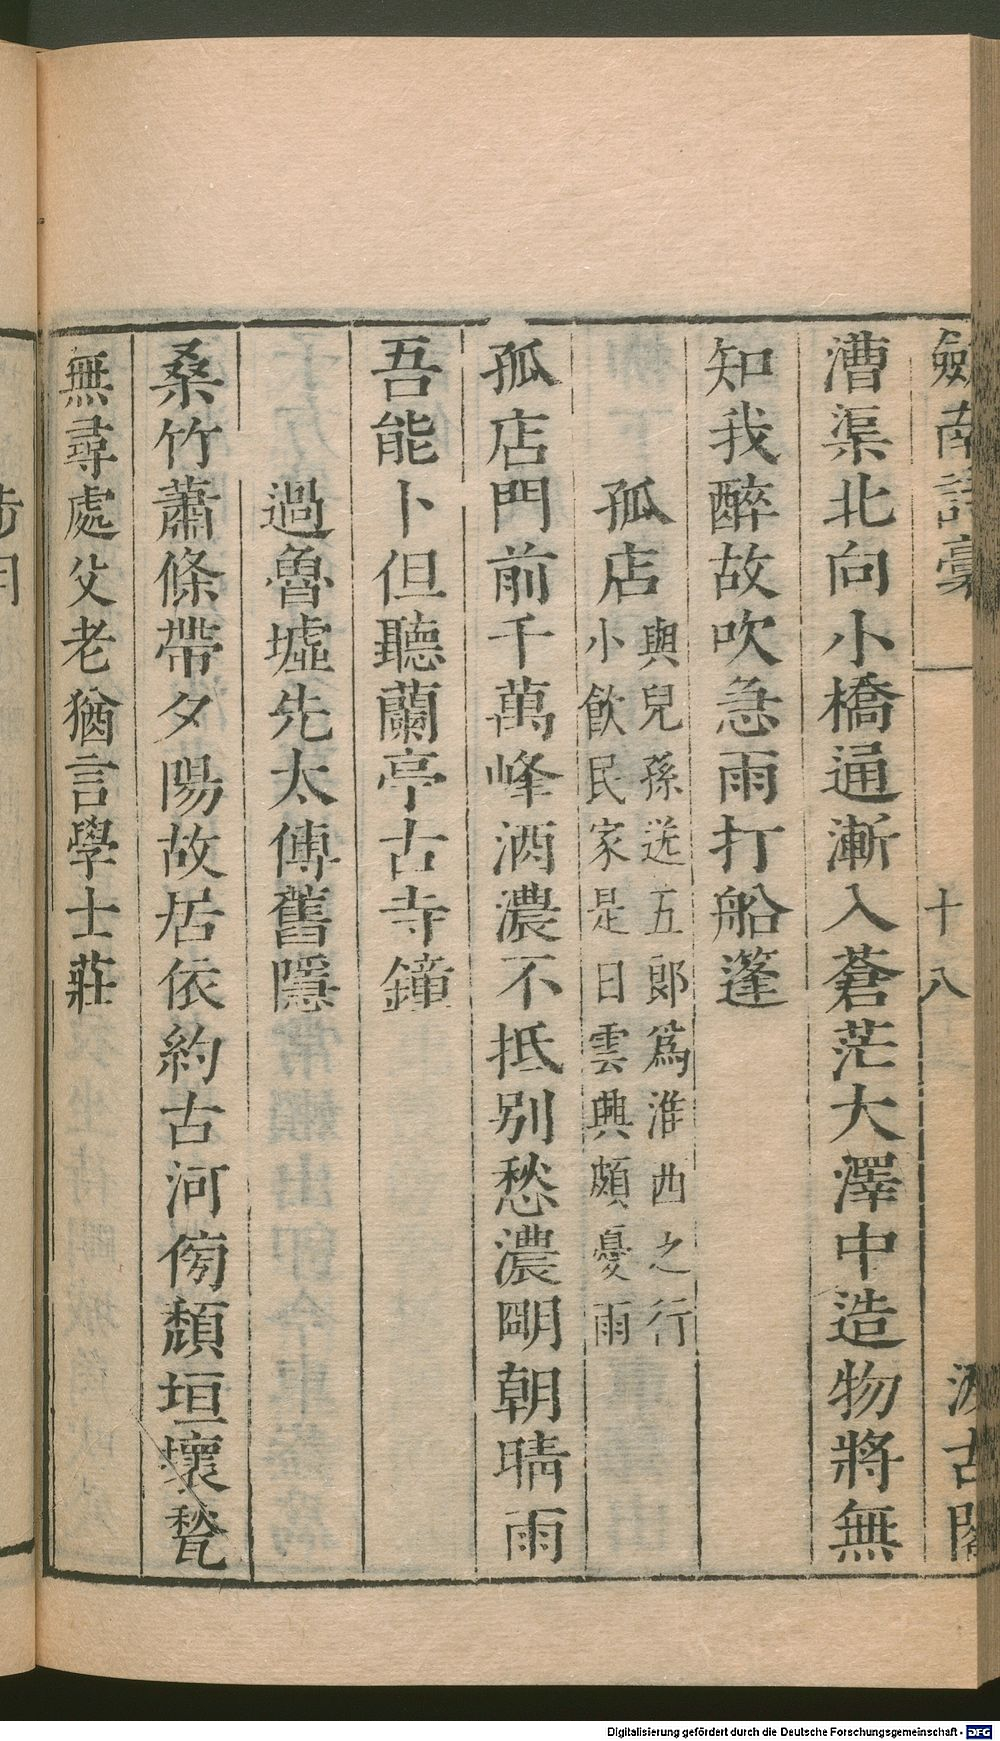 劍南詩稾　十八　汲古閣
漕渠北向小橋通漸入蒼茫大澤中造物將無
知我醉故吹急雨打船篷
孤店與兒孫送五郎爲淮西之行
小飲民家是日雲興頗憂雨
孤店門前千萬峰酒濃不抵別愁濃明朝晴雨
吾能卜但聽蘭亭古寺鐘
過魯墟先太傅舊隱
桑竹蕭條帶夕陽故居依約古河傍頹垣壞甃
無尋處父老猶言學士莊
Digitalisierung gefördert durch die Deutsche Forschungsgemeinschaft - DFG